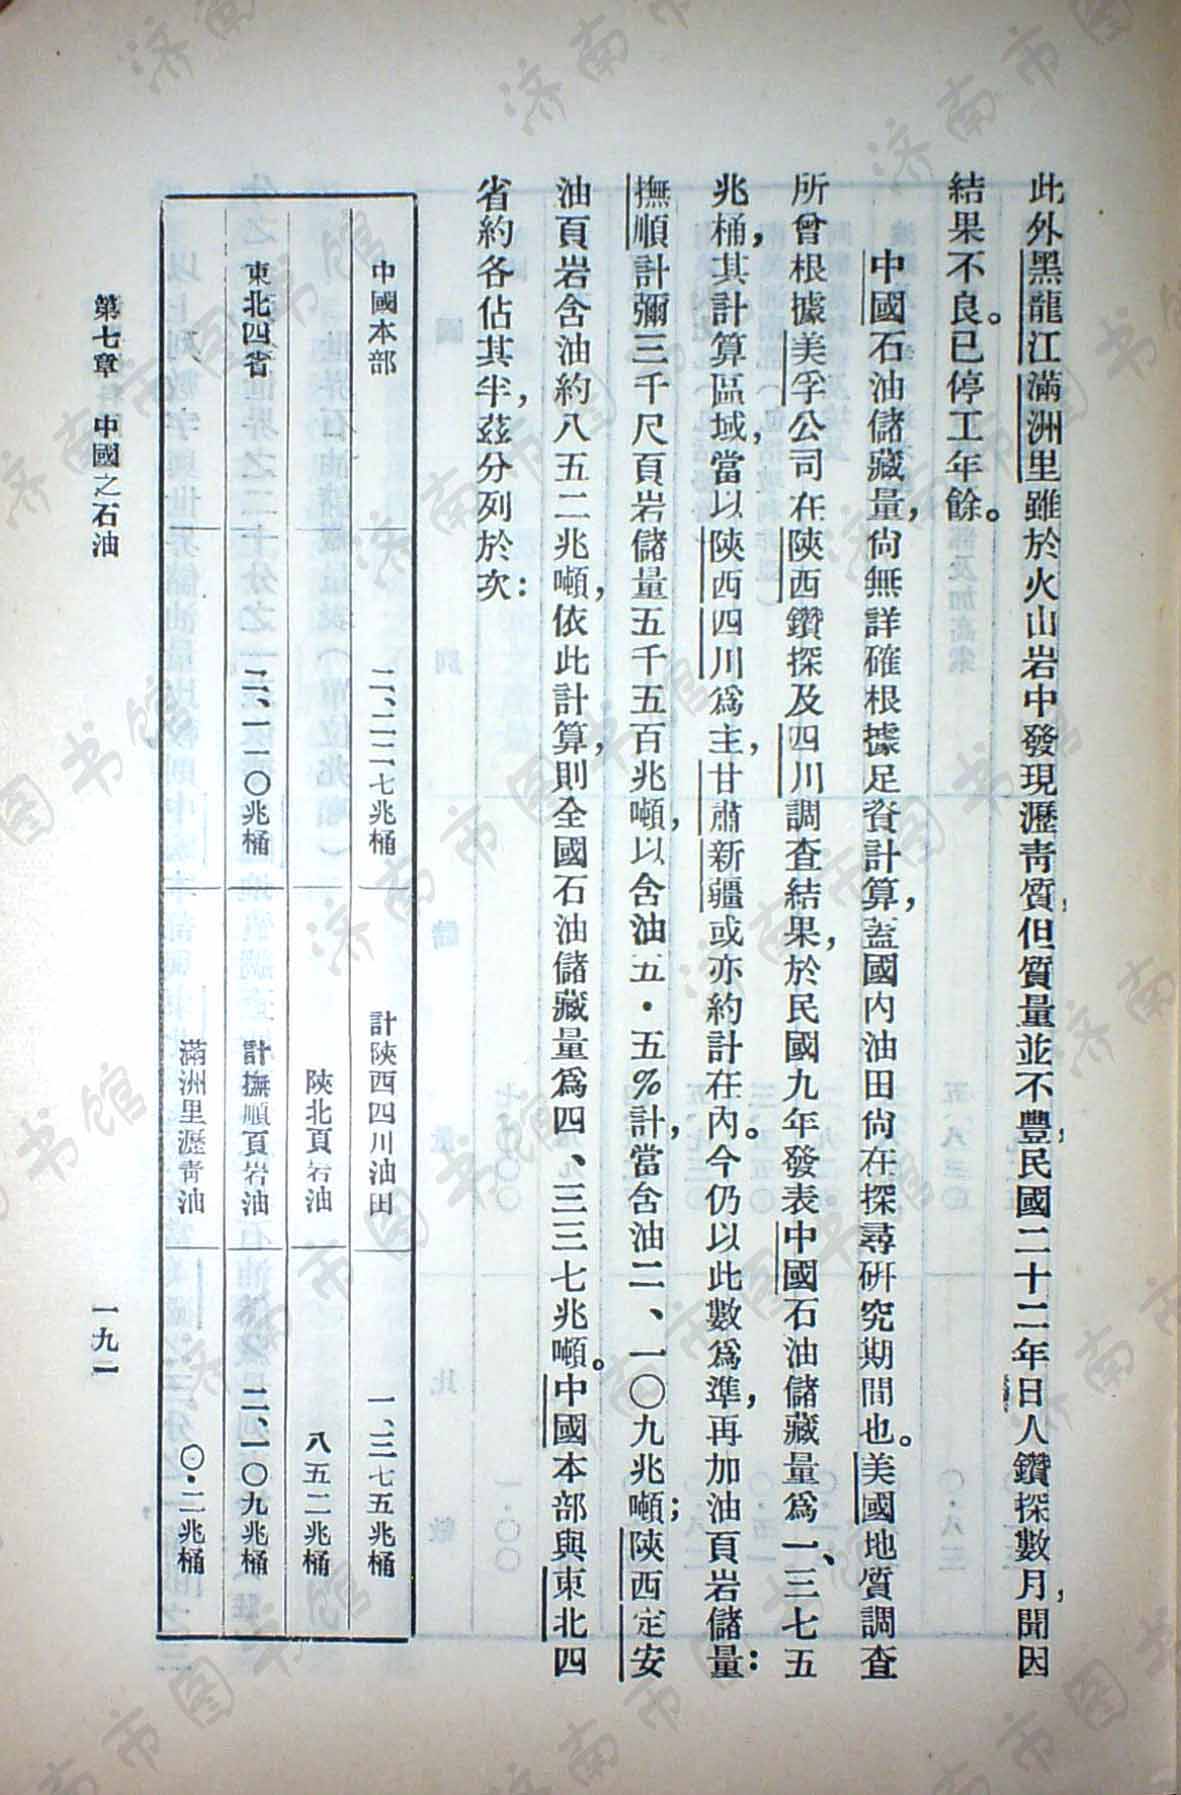 此外黑龍江滿洲里雖於火山岩中發現瀝青質,但質量並不豐,民國二十二年日人鑽探數月,聞因
結果不良。已停工年餘。
中國石油儲藏量,尚無詳確根據足資計算,蓋國內油田尚在探尋研究期間也。美國地質調查
所曾根據美孚公司在陝西鑽探及四川調查結果,於民國九年發表中國石油儲藏量為一、三七五
兆桶,其計算區域,當以陝西四川為主,甘肅新疆或亦約計在內。今仍以此數為準,再加油頁岩儲量:
撫順計彌三千尺頁岩儲量五千五百兆噸,以含油五·五%計,當含油二、一〇九兆噸;陝西定安
油頁岩含油約八五二兆噸,依此計算,則全國石油儲藏量為四、三三七兆噸。中國本部與東北四
省約各佔其半,茲分列於次:
中國本部 二、二二七兆桶 計陝西四川油田 一、三七五兆桶
陝北頁岩油 八五二兆桶
東北四省 二、一一〇兆桶 計撫順頁岩油 二、一〇九兆桶
滿洲里瀝青油 〇·二兆桶
第七章 中國之石油 一九一
济南市图书馆